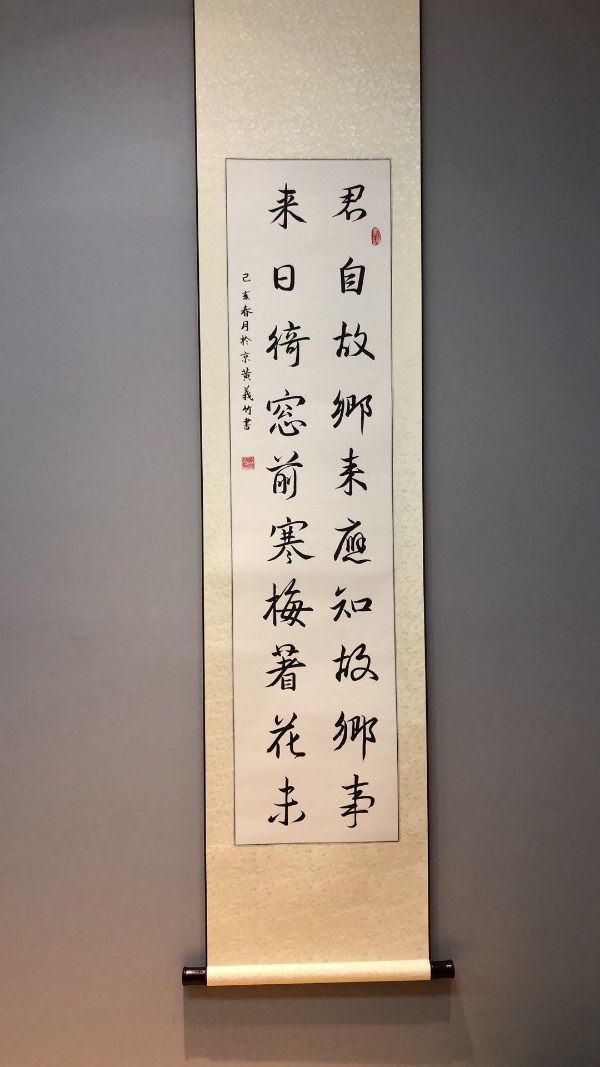 君自故鄉来應知故鄉事
来日綺窓前寒梅著花未
己亥春月於京黄義竹書